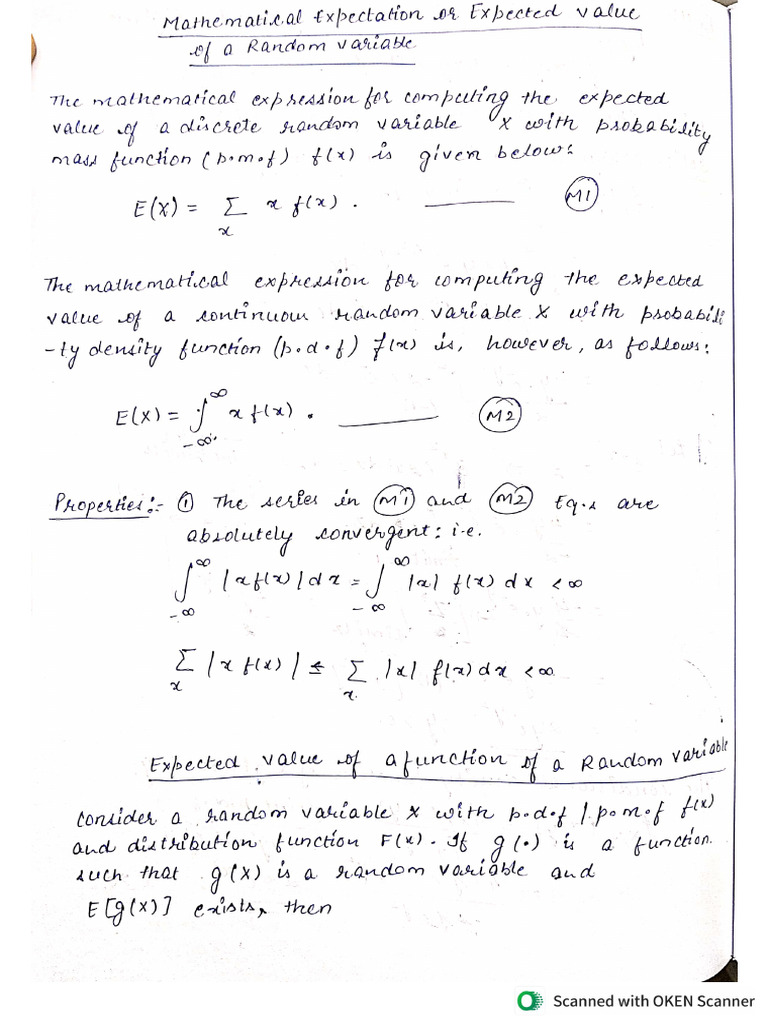 Mathematical Expectation or Expected value
of a Random variable
The mathematical expression for computing the expected
value of a discrete random variable X with probability
mass function (p.m.f) f(x) is given below:
E(X) = Σ x f(x). ——— (M1)
x
The mathematical expression for computing the expected
value of a continuous random variable X with probabili
-ty density function (p.d.f) f(x) is, however, as follows:
E(X) = ∫_{-∞}^{∞} x f(x). ——— (M2)
Properties:- ① The series in (M1) and (M2) Eq.s are
absolutely convergent: i.e.
∫_{-∞}^{∞} |x f(x)| dx = ∫_{-∞}^{∞} |x| f(x) dx < ∞
Σ_x |x f(x)| ≤ Σ_x |x| f(x) dx < ∞
Expected value of a function of a Random variable
Consider a random variable X with p.d.f / p.m.f f(x)
and distribution function F(x). If g(.) is a function.
such that g(X) is a random variable and
E[g(X)] exists, then
Scanned with OKEN Scanner